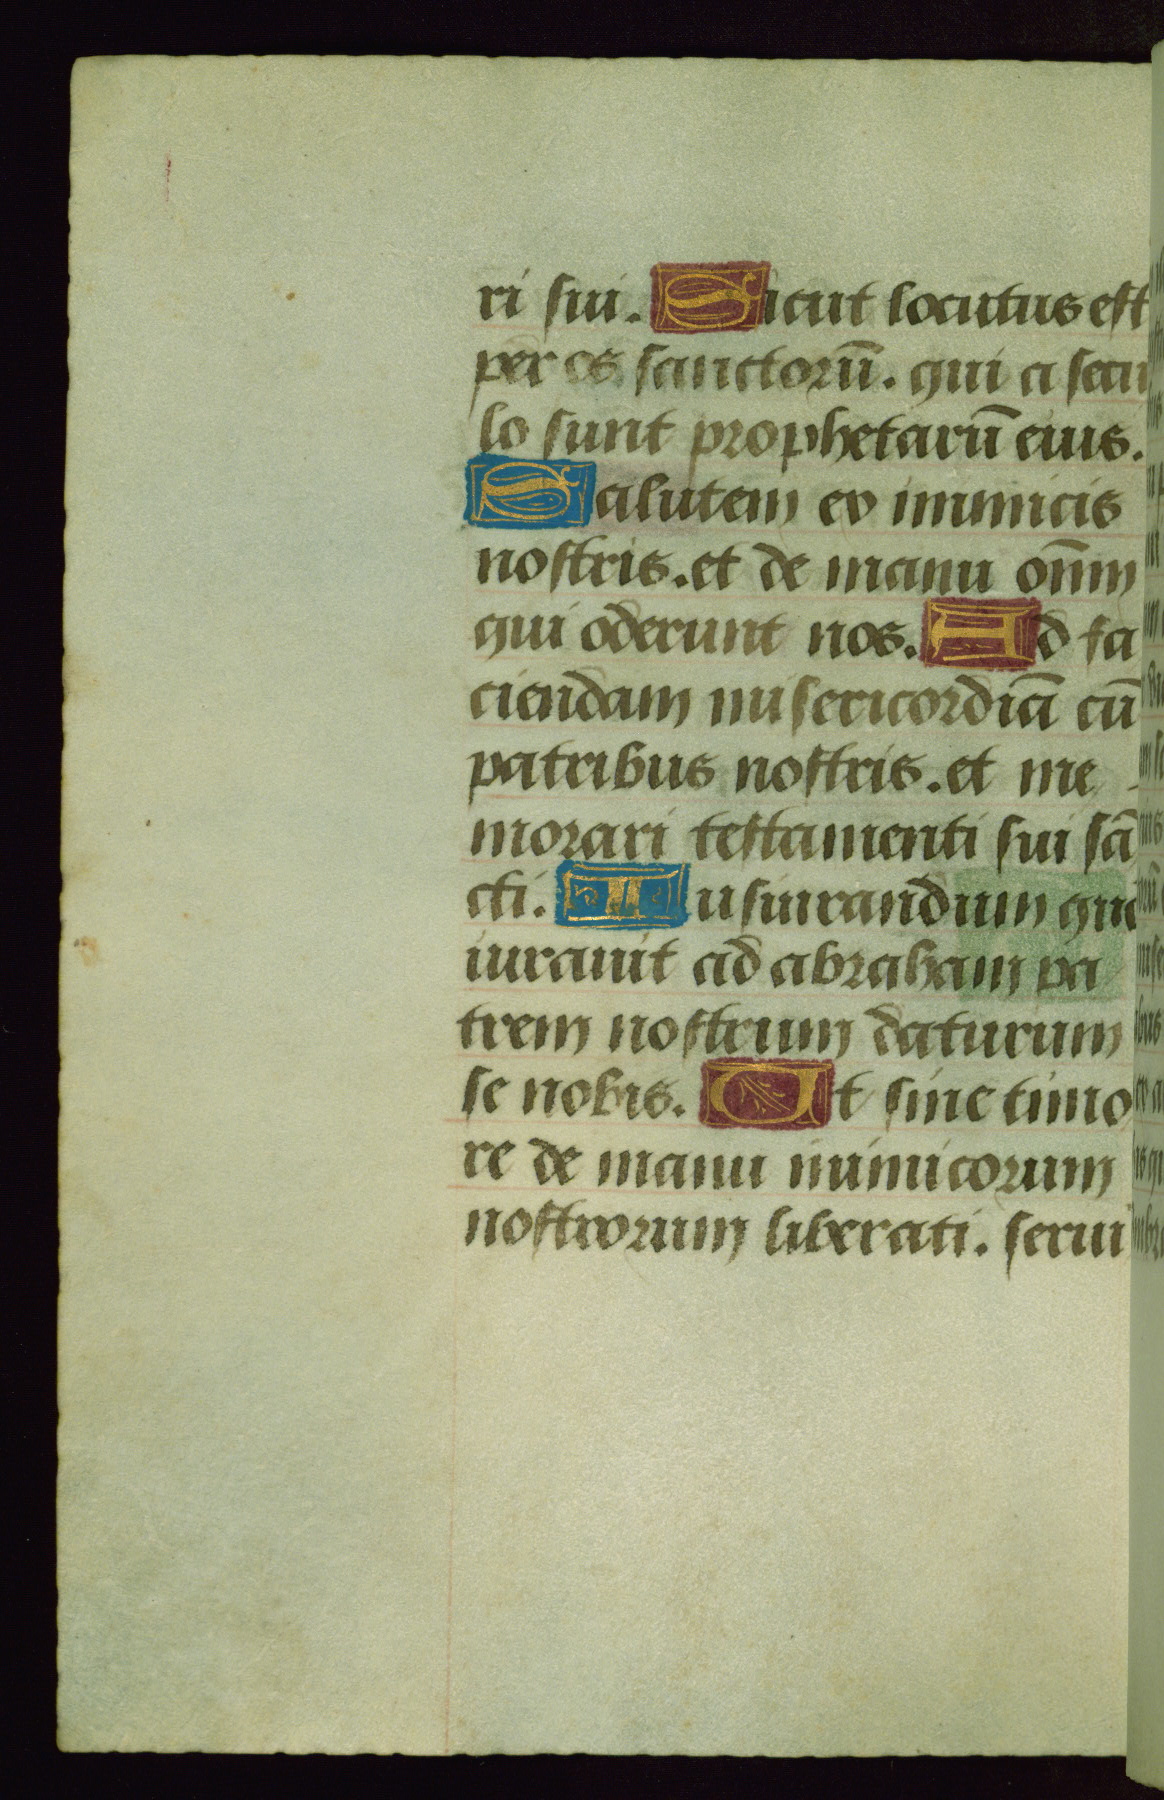 ri sui. Sicut locutus est
per os sanctorū. qui a secu
lo sunt prophetarū eius.
Salutem ex inimicis
nostris. et de manu om̄m
qui oderunt nos. Ad fa
ciendam misericordiā cū
patribus nostris. et me-
morari testamenti sui sā
cti. Iusiurandum quod
iurauit ad abraham pa
trem nostrum daturum
se nobis. Ut sine timo
re de manu inimicorum
nostrorum liberati. serui